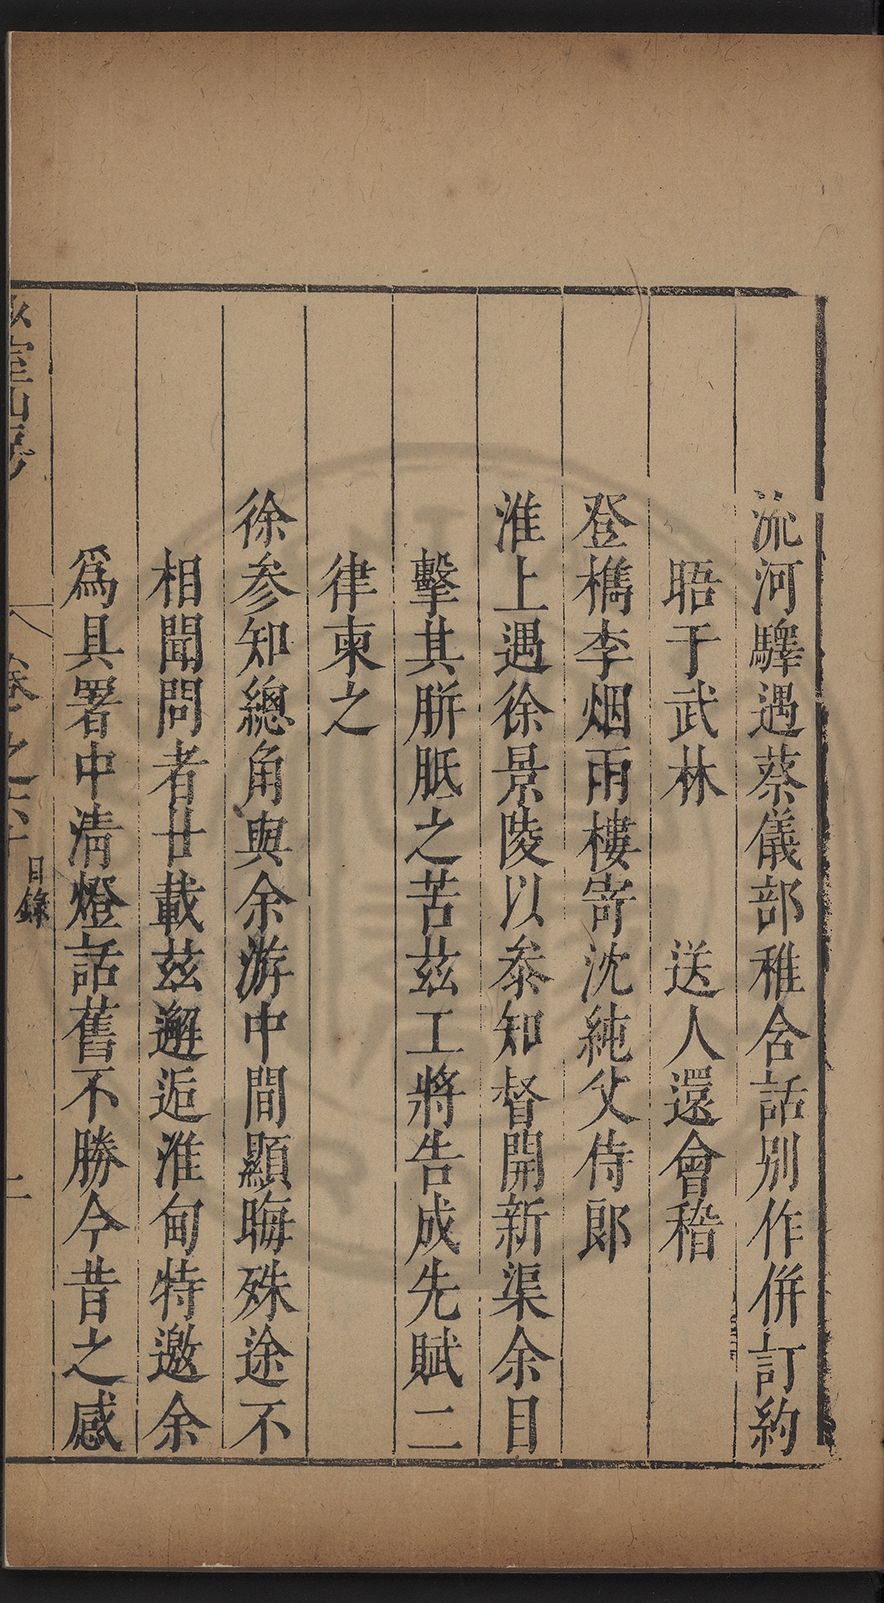 流河驛遇蔡儀部稚含話別作併訂約
晤于武林　送人還會稽
登檇李烟雨樓寄沈純父侍郎
淮上遇徐景陵以叅知督開新渠余目
擊其胼胝之苦茲工將告成先賦二
律柬之
徐參知總角與余游中間顯晦殊途不
相聞問者廿載茲邂逅淮甸特邀余
爲具署中清燈話舊不勝今昔之感
室山房
卷之
目錄
二